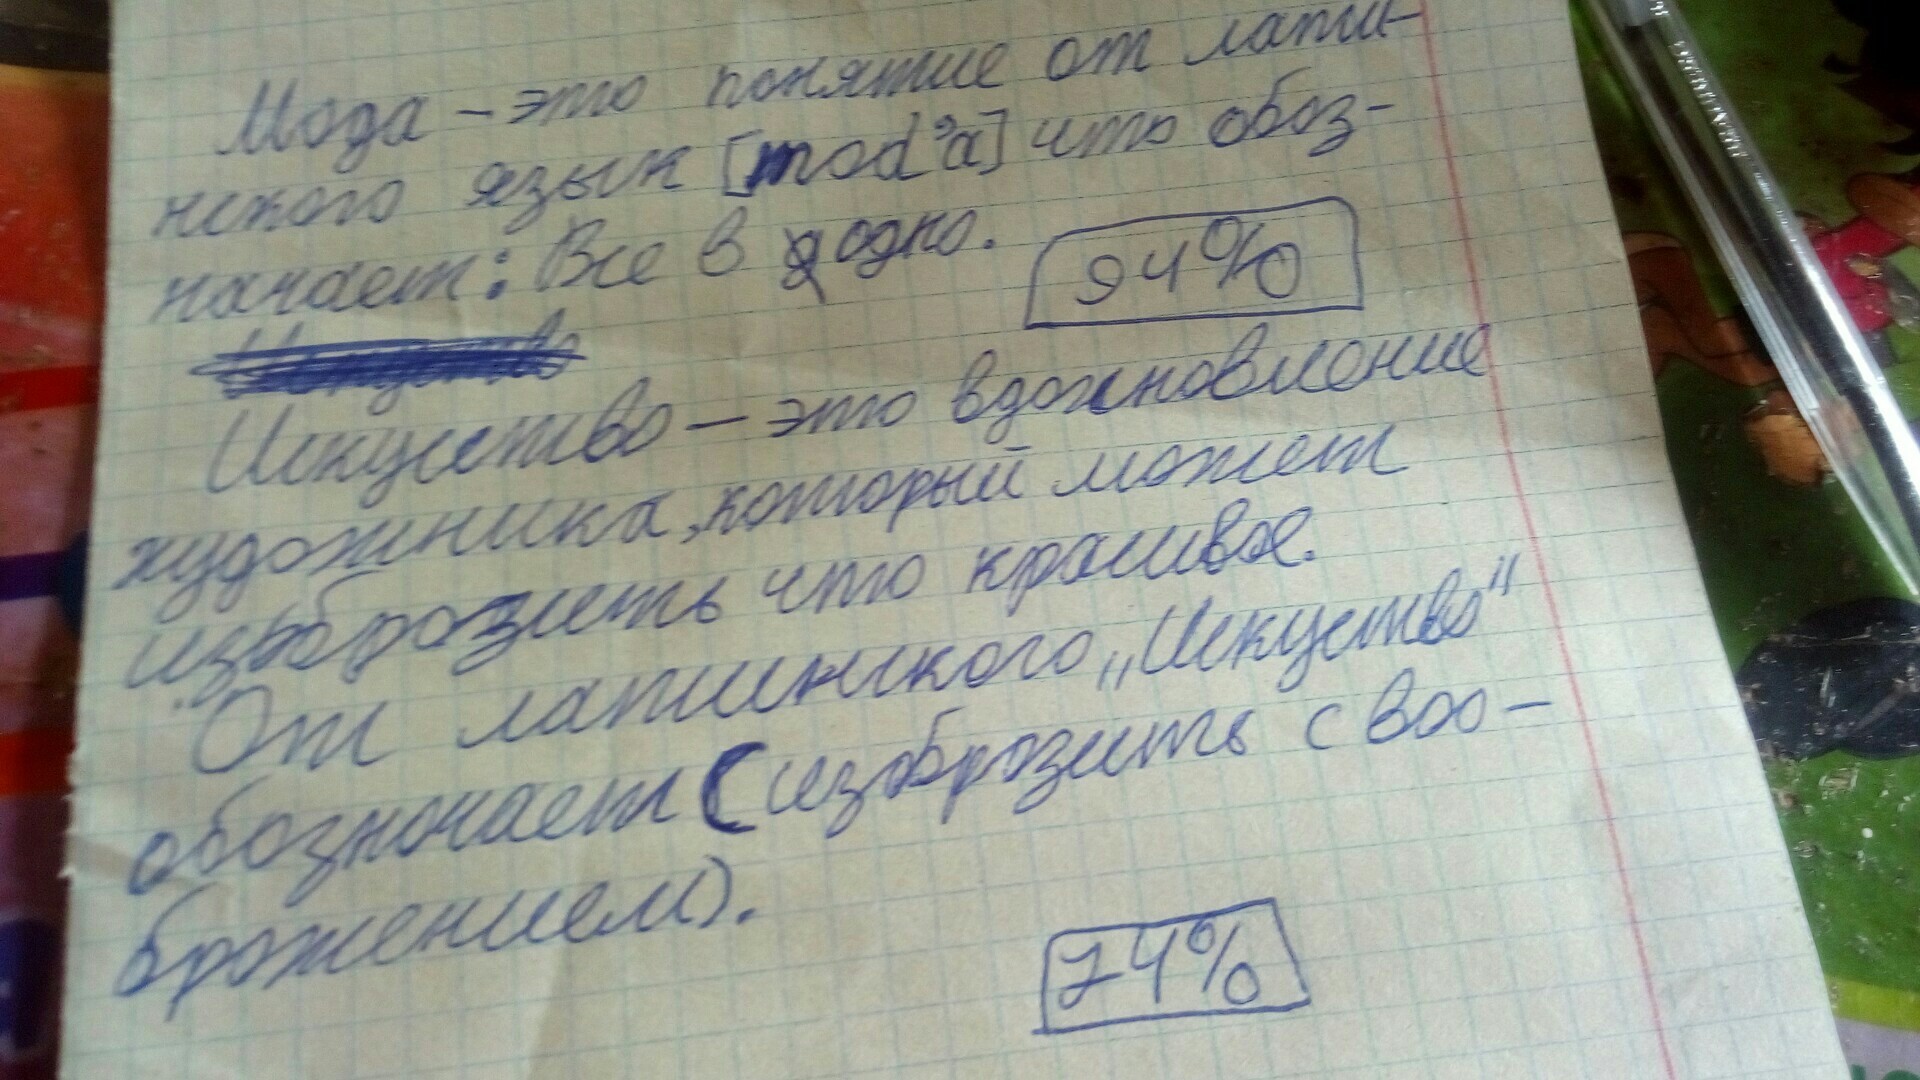 Мода – это понятие от лати-
нского язык [mod'a] что обоз-
начает: Все в одно.
94%
Искуство – это вдохновление
художника, который может
изоброзить что красивое.
От латинского „Искуство"
обозночает (изоброзить с воо-
брожением).
74%